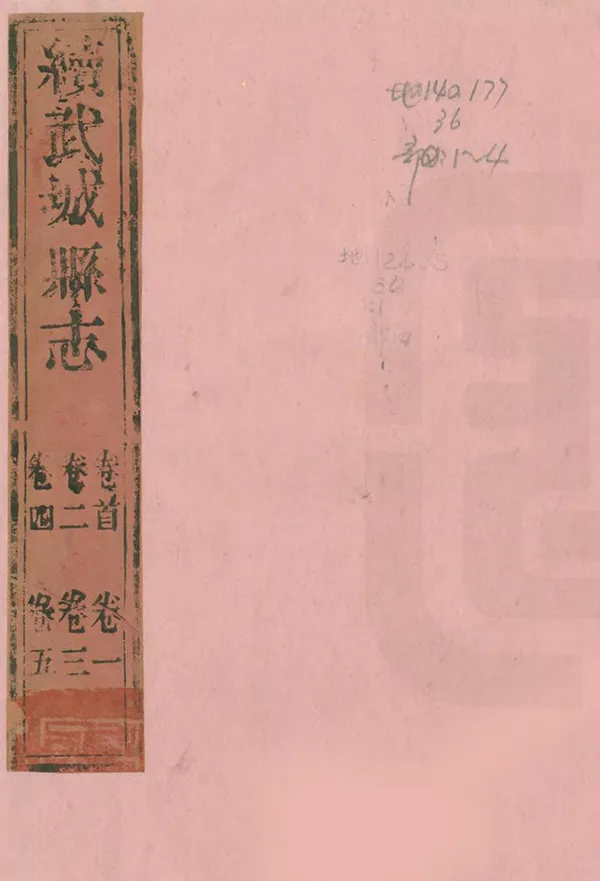 續武城縣志
卷首 卷一
卷二 卷三
卷四 卷五
地140.177
36
部四:1~4
地
36